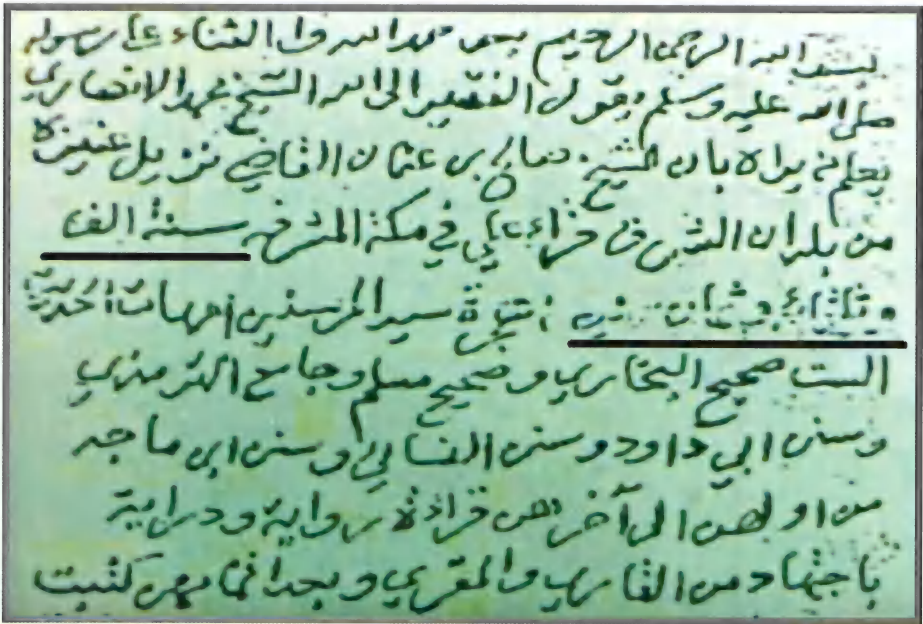 بسم الله الرحمن الرحيم بعد حمد الله والثناء على رسوله
صلى الله عليه وسلم يقول الفقير الى الله الشيخ محمد الانصاري
يعلم من يراه بان الشيخ صالح بن عثمان القاضي نزيل عنيزة
من بلدان الشرق قراء علي في مكة المشرفه سنة الف
وثلاثمائة وثمان هجرة سيد المرسلين امهات
الست صحيح البخاري وصحيح مسلم وجامع الترمذي
وسنن ابي داود وسنن النسائي وسنن ابن ماجه
من اولهن الى آخرهن قراءة رواية ودراية
باجتهاد من القاري والمقري وبعد اتمامهن كتبت